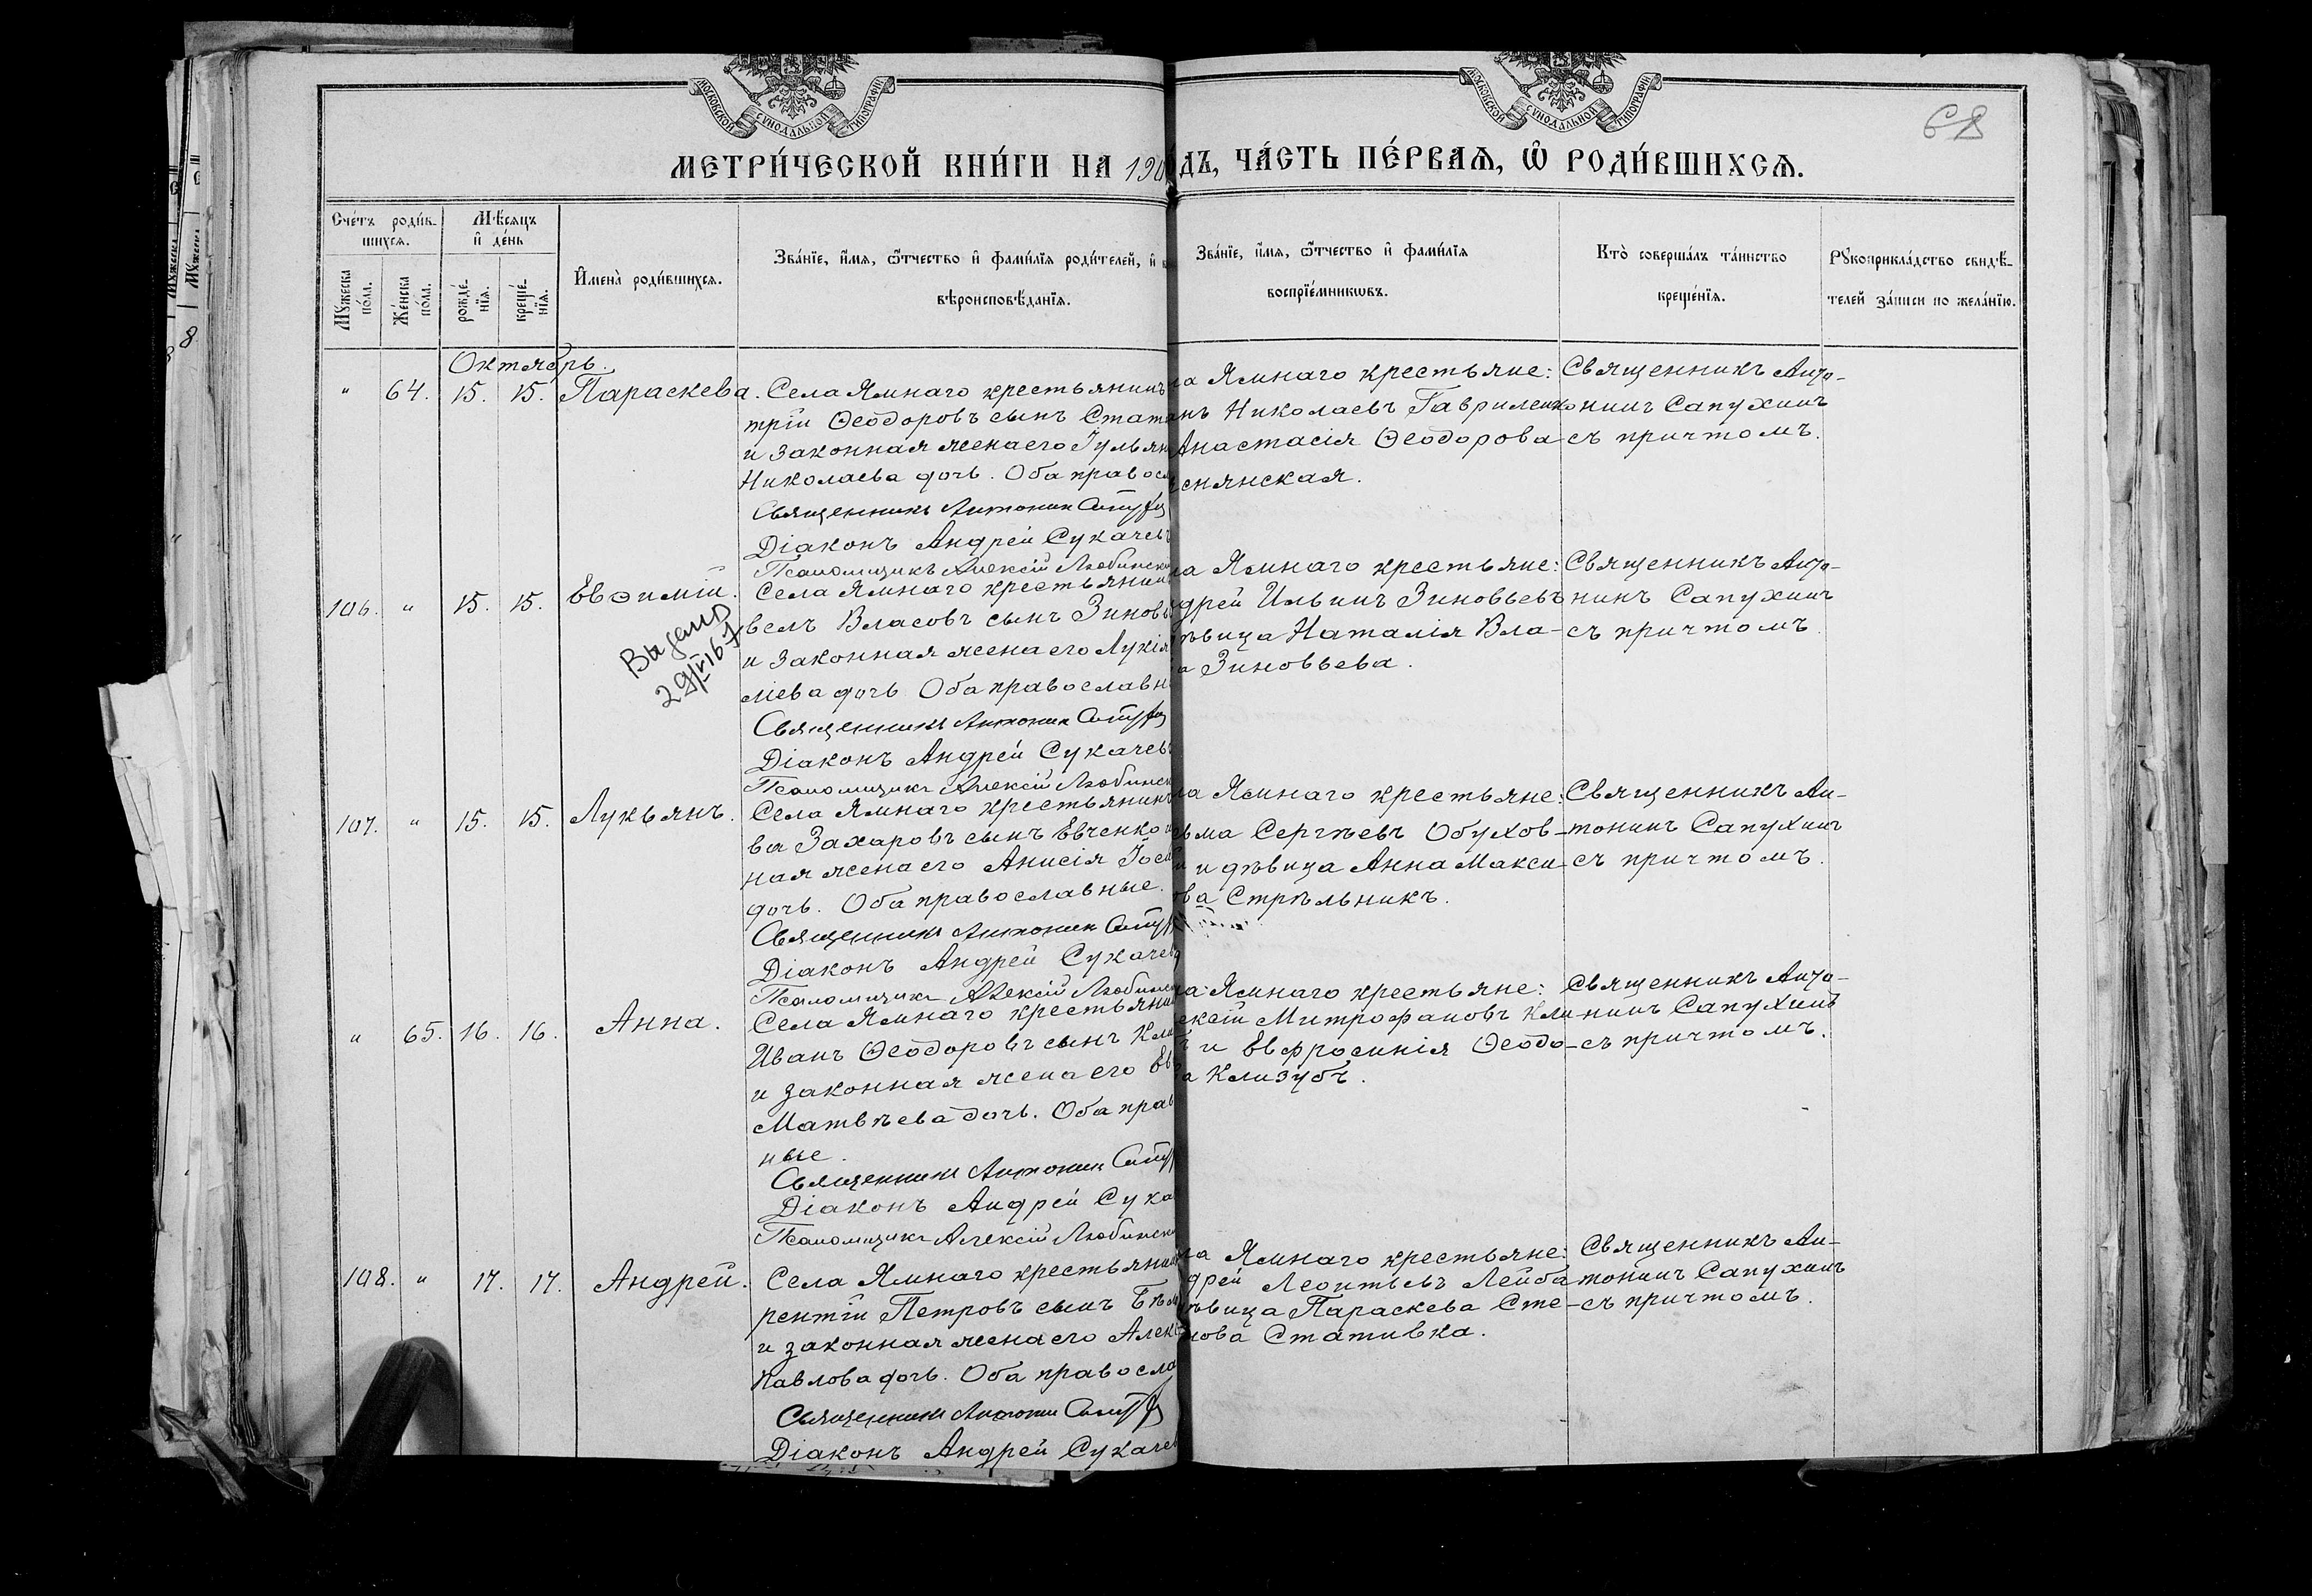 МОСКОВСКОЙ СУНОДАЛЬНОЙ ТИПОГРАФИ
МОСКОВСКОЙ СУНОДАЛЬНОЙ ТИПОГРАФИ
68
МЕТРИ́ЧЕСКОЙ КНИ́ГИ НА 190
ДЪ, ЧА́СТЬ ПЕ́РВАѦ, Ѽ РОДИ́ВШИХСѦ.
Сче́тъ роди́в-
шихся.
Мѣ́сяцъ
и҆ де́нь
Му́жеска по́ла.
Же́нска по́ла.
рожде́нїя.
креще́нїя.
И҆мена̀ роди́вшихся.
Зва́нїе, и҆́мя, ѻ҆́тчество и҆ фами́лїя роди́телей, и҆
вѣроисповѣ́данїя.
Зва́нїе, и҆́мя, ѻ҆́тчество и҆ фами́лїя
воспрїе́мникѡвъ.
Кто̀ соверша́лъ та́инство
креще́нїя.
Рꙋкоприкла́дство свидѣ́-
телей за́писи по жела́нїю.
Октябрь.
" 64. 15. 15. Параскева.
Села Ямнаго крестьянинъ
трій Ѳеодоровъ сынъ Стат
и законная жена его Іульян
Николаева дочь. Оба правосл
Священникъ Антонин Сапух
Діаконъ Андрей Сукачевъ
Псаломщикъ Алексій Любински
ла Ямнаго крестьяне:
нъ Николаевъ Гавриленко
Анастасія Ѳеодорова
енянская.
Священникъ Анто-
нинъ Сапухинъ
съ причтомъ.
106. " 15. 15. Евѳимій.
Выдана
29/IV 16 г
Села Ямнаго крестьянин
велъ Власовъ сынъ Зиновь
и законная жена его Лукія
міева дочь Оба православн
Священникъ Антонин Сапух
Діаконъ Андрей Сукачевъ
Псаломщикъ Алексій Любинск
ла Ямнаго крестьяне:
дрей Ильинъ Зиновьевъ
ѣвица Наталія Вла-
а Зиновьева.
Священникъ Анто-
нинъ Сапухинъ
съ причтомъ.
107. " 15. 15. Лукьянъ.
Села Ямнаго крестьянинъ
ва Захаровъ сынъ Евченко и
ная жена его Анисія Іоси
дочь. Оба православные.
Священникъ Антонин Сапу
Діаконъ Андрей Сукачев
Псаломщикъ Алексій Любинс
ла Ямнаго крестьяне:
зьма Сергѣевъ Обухов-
й и дѣвица Анна Макси-
ова Стрѣльникъ.
Священникъ Ан-
тонинъ Сапухинъ
съ причтомъ.
" 65. 16. 16. Анна.
Села Ямнаго крестьянин
Иванъ Ѳеодоровъ сынъ Кли
и законная жена его Ев
Матвѣева дочь. Оба прав
ные.
Священникъ Антонин Сапу
Діаконъ Андрей Сука
Псаломщикъ Алексій Любинск
ла Ямнаго крестьяне:
ексій Митрофановъ Кли-
ъ и Евфросинія Ѳеодо-
а Клизубъ.
Священникъ Анто-
нинъ Сапухинъ
съ причтомъ.
108. " 17. 17. Андрей.
Села Ямнаго крестьянин
рентій Петровъ сынъ Бѣл
и законная жена его Алек
Павлова дочь. Оба правосла
Священникъ Антонин Сапух
Діаконъ Андрей Сукачев
ла Ямнаго крестьяне:
дрей Леонтьевъ Лейба
ѣвица Параскева Сте-
нова Стативка.
Священникъ Ан-
тонинъ Сапухинъ
съ причтомъ.